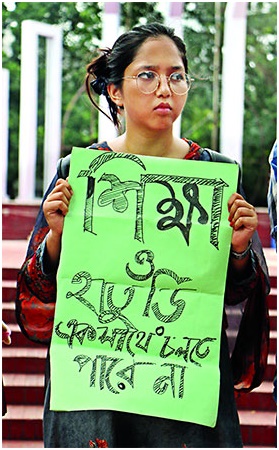 শিক্ষা
ও
হাতুড়ি
একসাথে চলতে
পারে না